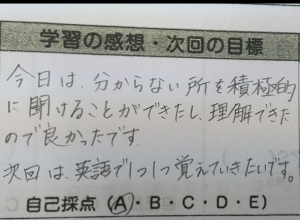 学習の感想・次回の目標
今日は、分からない所を積極的
に聞けることができたし、理解できた
ので良かったです
次回は、英語で1つ1つ覚えていきたいです。
自己採点（A・B・C・D・E）